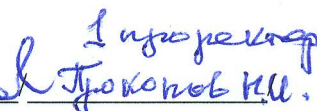 1 проректор
Прокопов Н.И.